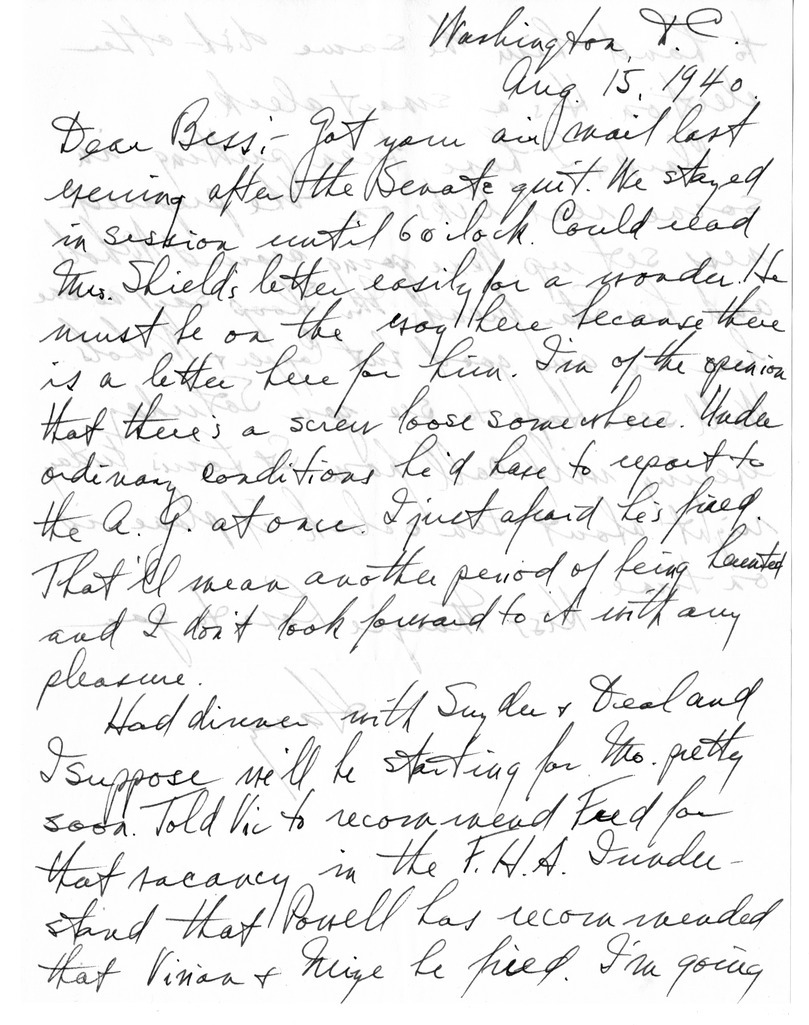 Washington, D.C.
Aug. 15, 1940.
Dear Bess:- Got your air mail last
evening after the Senate quit. We stayed
in session until 6 o'clock. Could read
Mrs. Shields letter easily for a wonder. He
must be on the way here because there
is a letter here for him. I'm of the opinion
that there's a screw loose somewhere. Under
ordinary conditions he'd have to report to
the A. G. at once. I just afraid he's fired.
That'll mean another period of being haunted
and I don't look forward to it with any
pleasure.
Had dinner with Snyder & Deal and
I suppose we'll be starting for Mo. pretty
soon. Told Vic to recommend Fred for
that vacancy in the F.H.A. I under-
stand that Powell has recommended
that Vivian & Mize be fired. I'm going